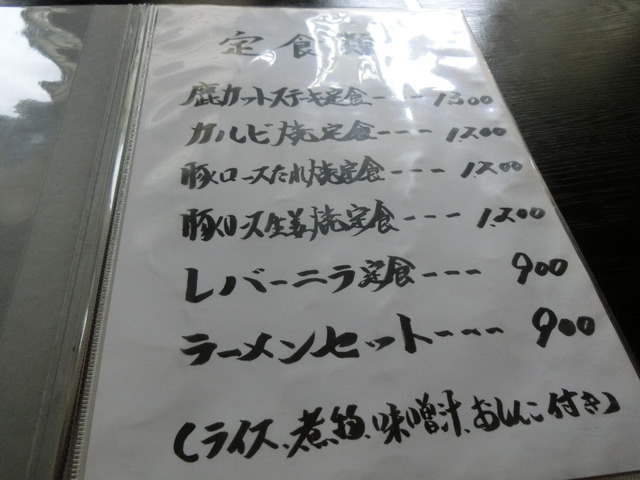 定食類
鹿カットステーキ定食---- 1300
カルビ焼定食--- 1,200
豚ロースたれ焼定食--- 1,200
豚ロース生姜焼定食--- 1,200
レバーニラ定食--- 900
ラーメンセット---- 900
(ライス、煮物、味噌汁、おしんこ付き)